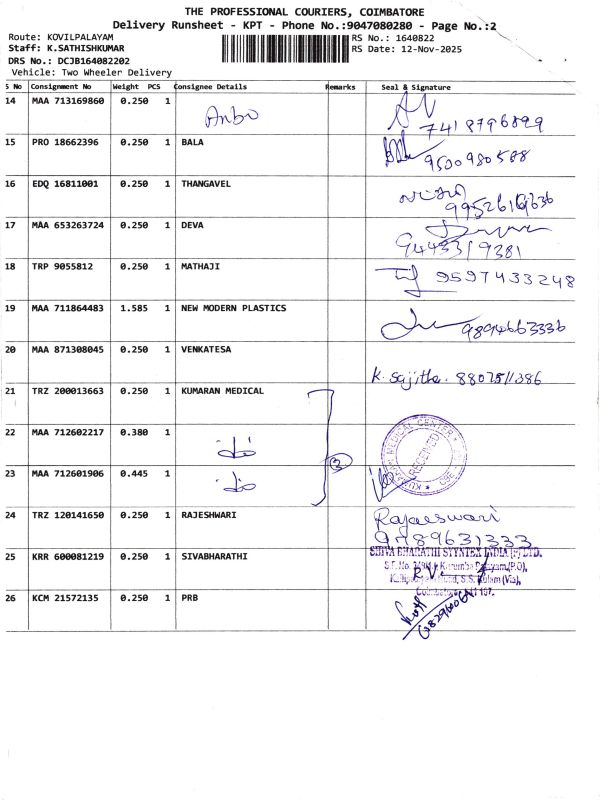 THE PROFESSIONAL COURIERS, COIMBATORE
Delivery Runsheet - KPT - Phone No.:9047080280 - Page No.:2
Route: KOVILPALAYAM RS No.: 1640822
Staff: K.SATHISHKUMAR RS Date: 12-Nov-2025
DRS No.: DCJB164082202
Vehicle: Two Wheeler Delivery
S No Consignment No Weight PCS Consignee Details Remarks Seal & Signature
14 MAA 713169860 0.250 1 Anbu
7418796899
15 PRO 18662396 0.250 1 BALA
9500980588
16 EDQ 16811001 0.250 1 THANGAVEL
17 MAA 653263724 0.250 1 DEVA
9443319381
18 TRP 9055812 0.250 1 MATHAJI 9597433248
19 MAA 711864483 1.585 1 NEW MODERN PLASTICS
9894663336
20 MAA 871308045 0.250 1 VENKATESA
K. Sajitha. 8807511386
21 TRZ 200013663 0.250 1 KUMARAN MEDICAL
22 MAA 712602217 0.380 1
KUMARAN MEDICAL CENTER
RECEIVED
3
23 MAA 712601906 0.445 1
24 TRZ 120141650 0.250 1 RAJESHWARI Rajaeswari
9789631333
25 KRR 600081219 0.250 1 SIVABHARATHI SHIVA BHARATHI SYNTEX INDIA (P) LTD.
26 KCM 21572135 0.250 1 PRB